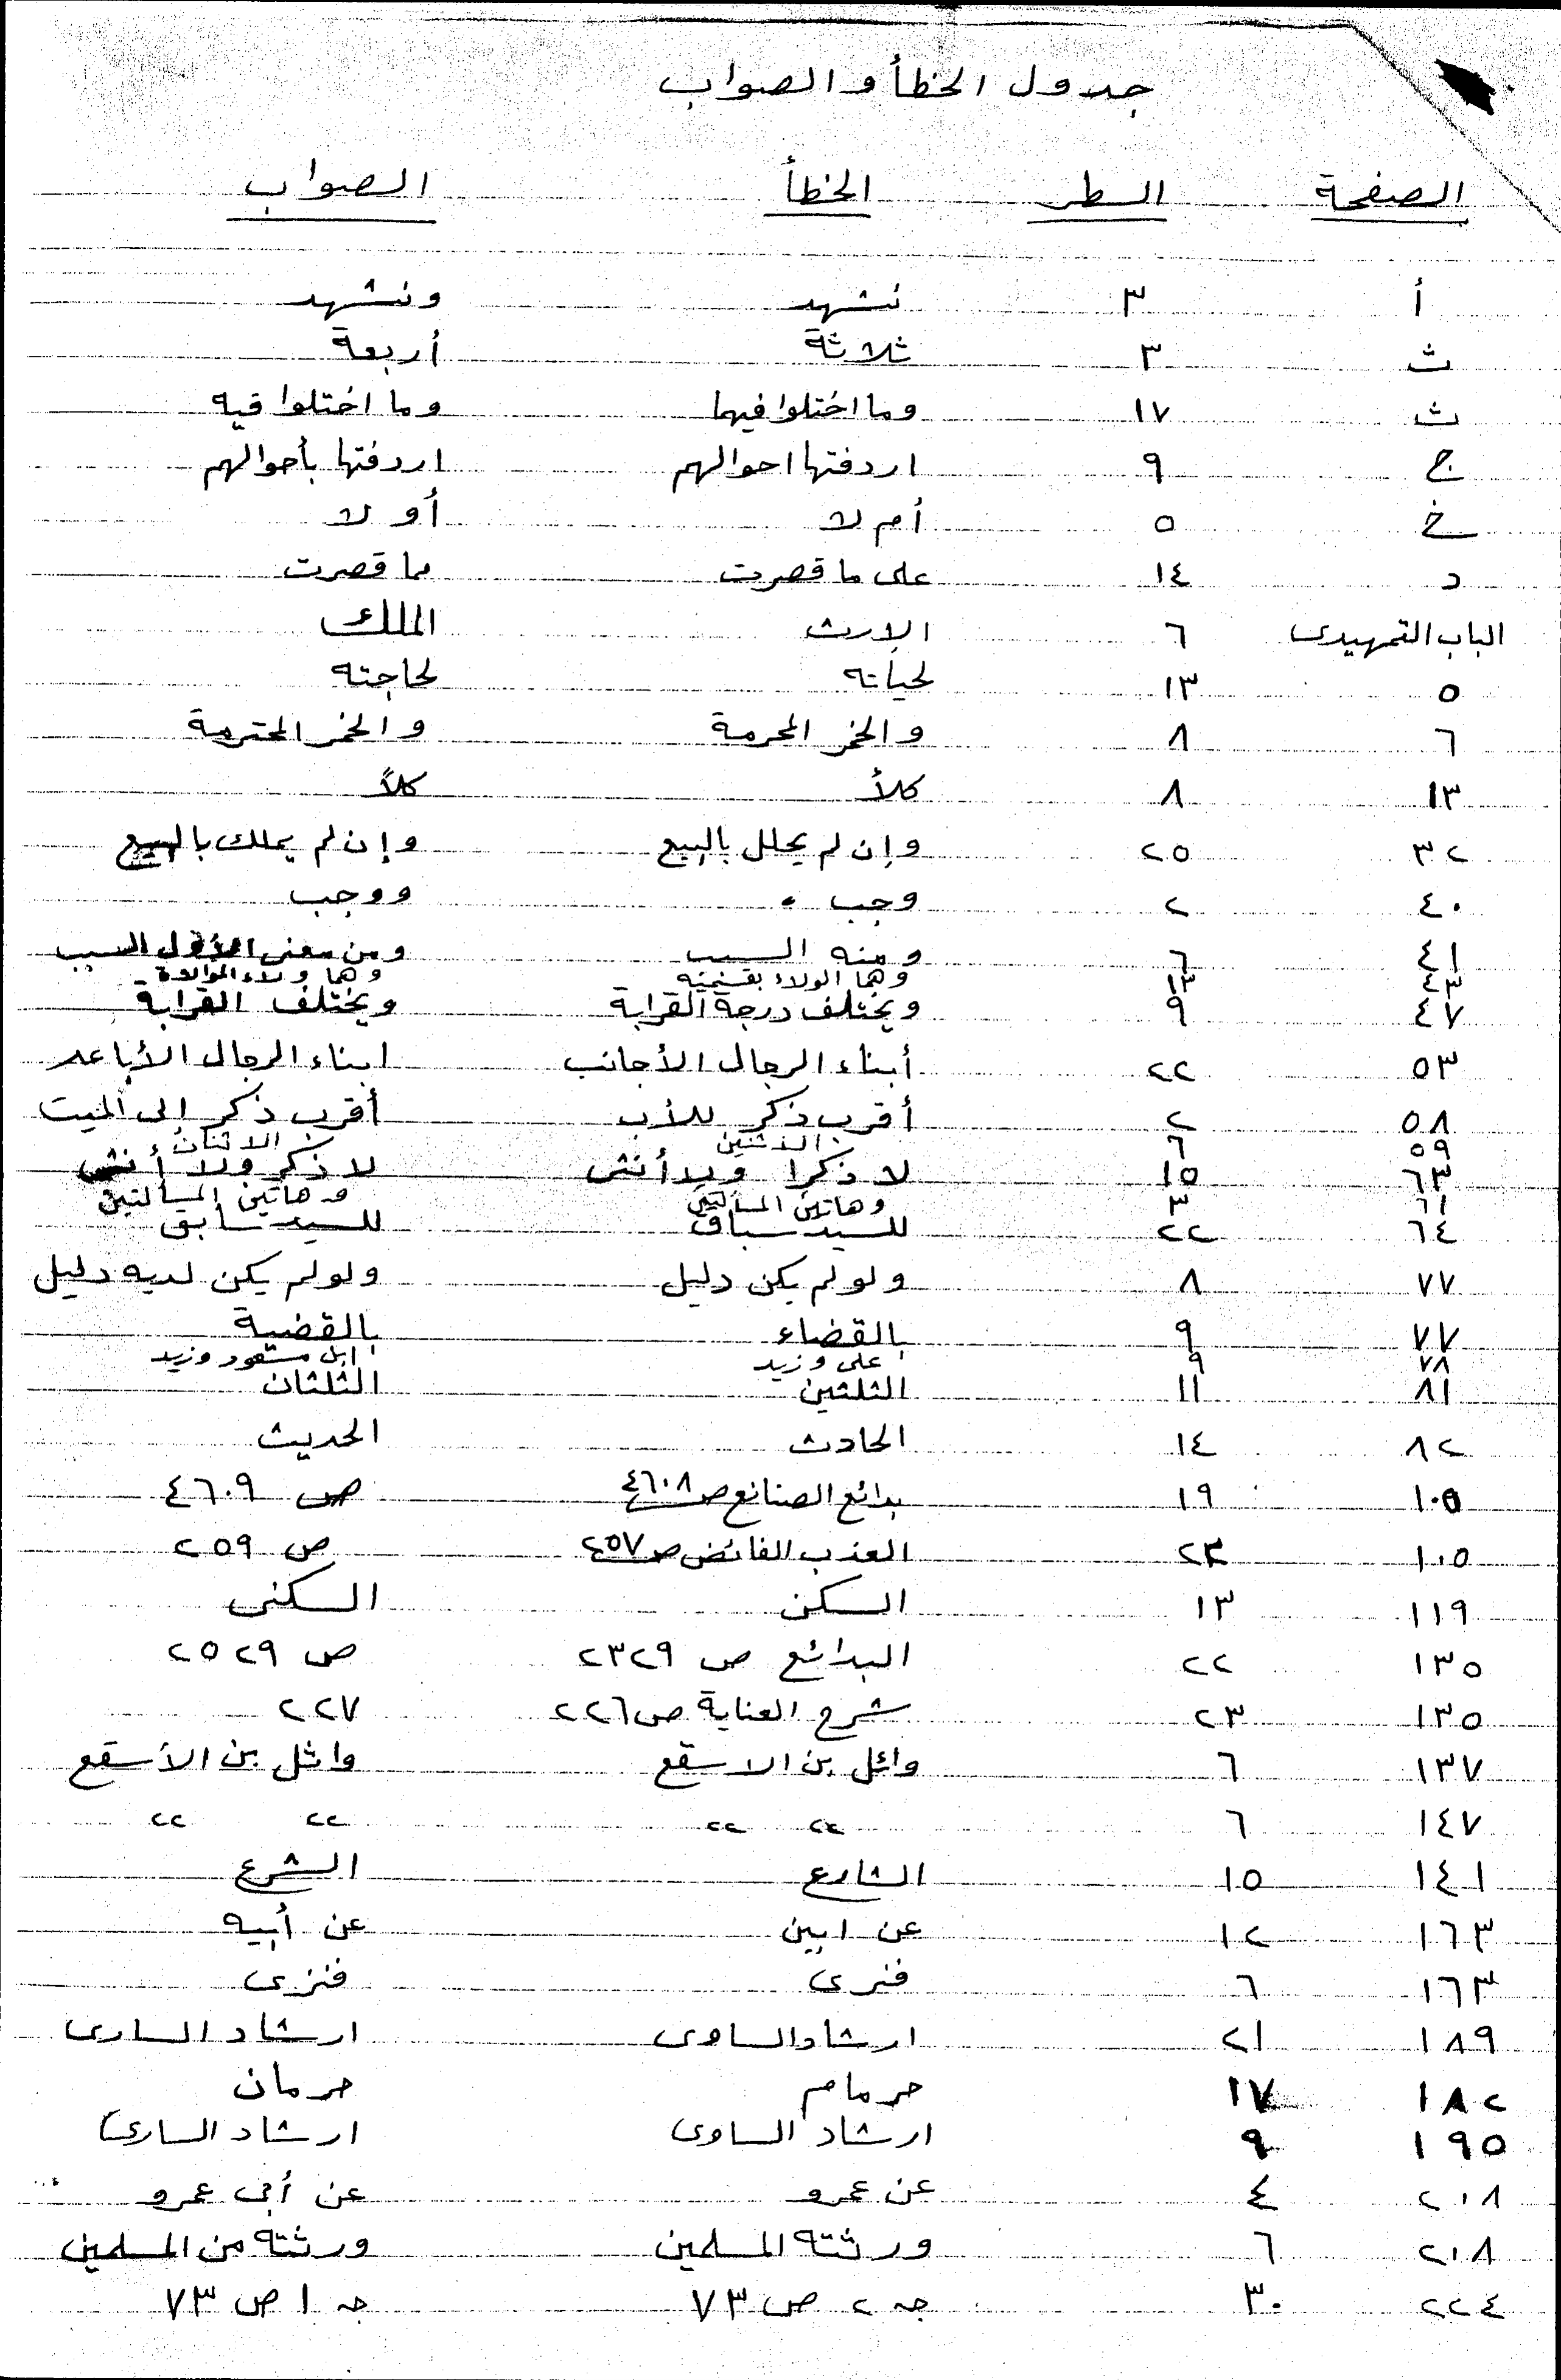 جدول الخطأ والصواب
الصفحة السطر الخطأ الصواب
أ ٣ نشهد ونشهد
ث ٣ ثلاثة أربعة
ث ١٧ وما اختلوا فيها وما اختلوا فيه
ج ٩ اردفتها احوالهم اردفتها بأحوالهم
خ ٥ أم لا أو لا
د ١٤ على ما قصرت مما قصرت
الباب التمهيدى ٦ الارث الملك
٥ ١٣ لحياته لحاجته
٦ ٨ والخمر المحرمة والخمر المحترمة
١٣ ٨ كلأ كلاً
٣٢ ٢٥ وإن لم يحلل بالبيع وإن لم يملك بالبيع
٤٠ ٢ وجب ووجب
٤١ ٦ ومنه السبب ومن معنى الأول السبب
٤٣ ١٣ وهما الولاء بقسميه وهما ولاء الموالاة
٤٧ ٩ ويختلف درجة القرابة ويختلف القرابة
٥٣ ٢٢ أبناء الرجال الأجانب ابناء الرجال الأباعد
٥٨ ٢ أقرب ذكر للأب أقرب ذكر إلى الميت
٥٩ ٦ الاثنين الاثنان
٦٣ ١٥ لا ذكرا ولا أنثى لا ذكر ولا أنثى
٦١ ٣ وهاتين المسألتين وهاتين المسألتين
٦٤ ٢٢ للسيد سباق للسيد سابق
٧٧ ٨ ولو لم يكن دليل ولو لم يكن لديه دليل
٧٧ ٩ بالقضاء بالقضية
٧٨ ٩ على وزيد ابن مسعود وزيد
٨١ ١١ الثلثين الثلثان
٨٢ ١٤ الحادث الحديث
١٠٥ ١٩ بدائع الصنائع ص ٤٦٠٨ ص ٤٦٠٩
١٠٥ ٢٣ العذب الفائض ص ٢٥٧ ص ٢٥٩
١١٩ ١٣ السكن السكنى
١٣٥ ٢٢ البدائع ص ٢٣٢٩ ص ٢٥٢٩
١٣٥ ٢٣ شرح العناية ص ٢٢٦ ٢٢٧
١٣٧ ٦ وائل بن الاسقع واثل بن الأسقع
١٤٧ ٦ 〃 〃 〃 〃
١٤١ ١٥ الشارع الشرع
١٦٣ ١٢ عن ابين عن أبيه
١٦٣ ٦ فنرى فنزى
١٨٩ ٢١ ارشاد الساوى ارشاد السارى
١٨٢ ١٧ حرمام حرمان
١٩٥ ٩ ارشاد الساوى ارشاد السارى
٢٠٨ ٤ عن عمرو عن أبى عمرو
٢٠٨ ٦ ورثته المسلمين ورثته من المسلمين
٢٢٤ ٣٠ جـ ٢ ص ٧٣ جـ ١ ص ٧٣